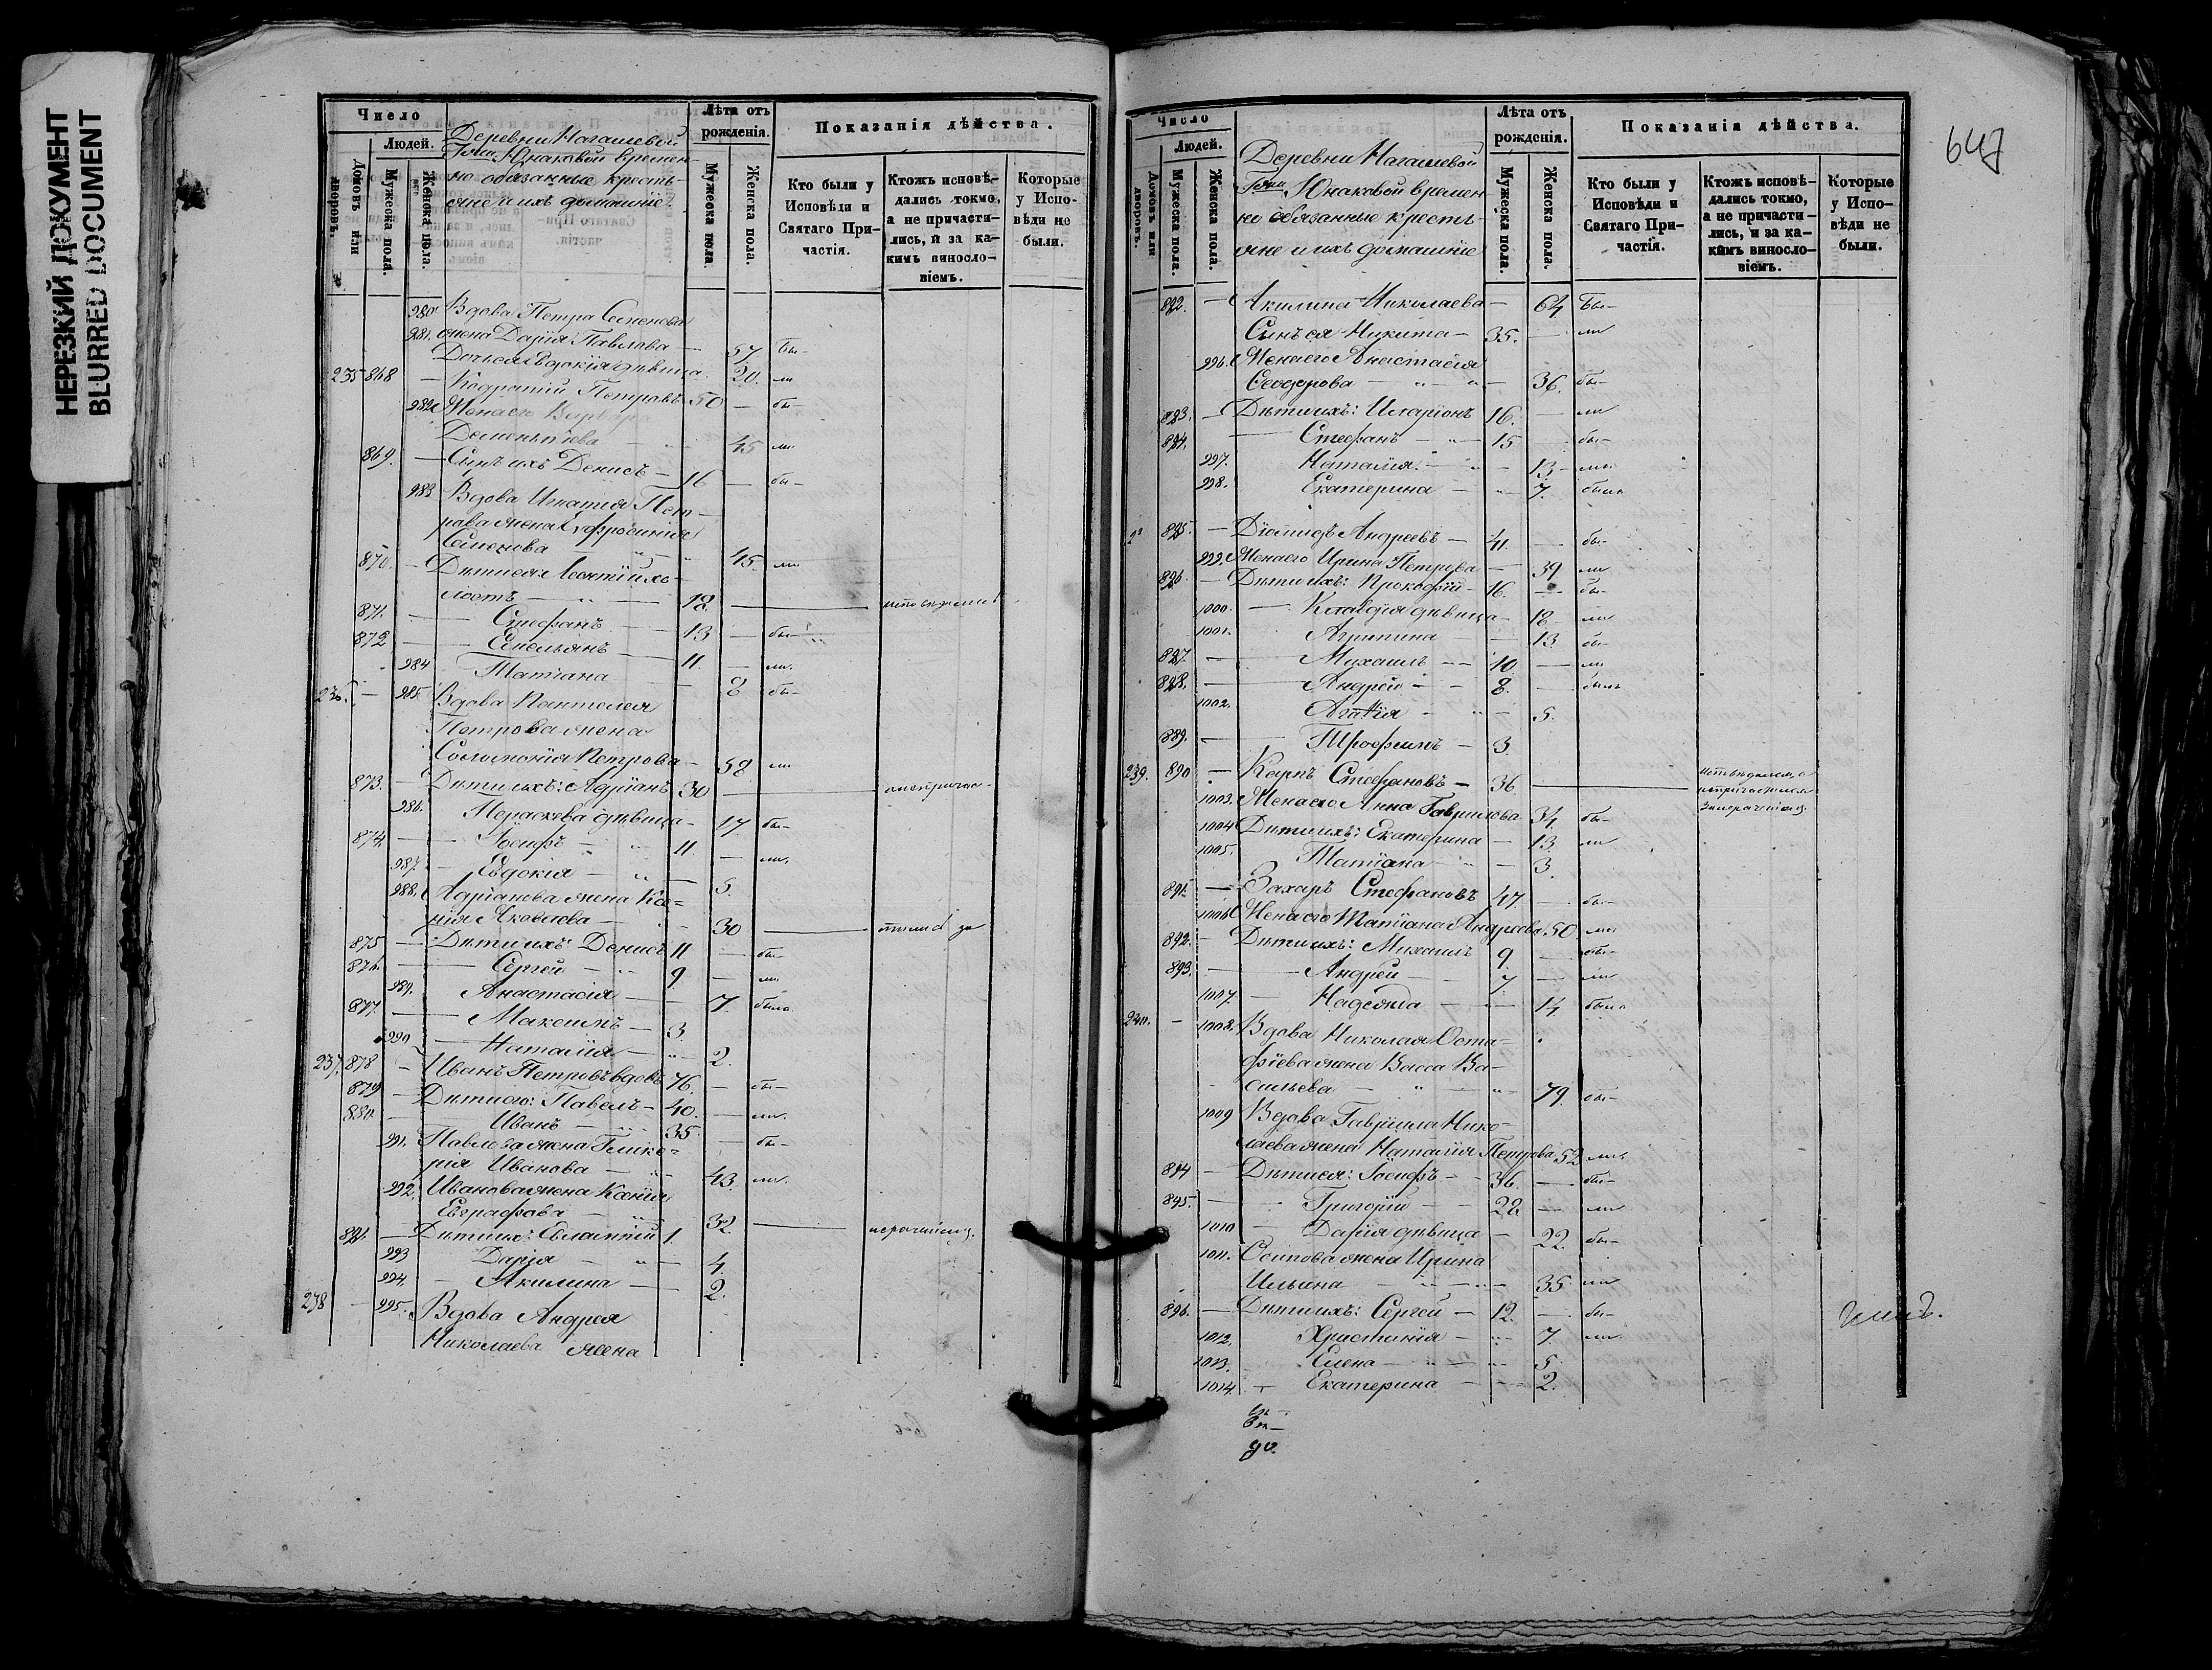 НЕРЕЗКИЙ ДОКУМЕНТ
BLURRED DOCUMENT
Число
Людей.
Домовъ или дворовъ.
Мужеска пола.
Женска пола.
Деревни Нагашевой
Гжи Юнаковой времен-
но обязанные кресть-
яне и ихъ домашніе.
Лѣта отъ рожденія.
Мужеска пола.
Женска пола.
Показанія дѣйства.
Кто были у Исповѣди и Святаго Причастія.
Ктожъ исповѣдались токмо, а не причастились, и за какимъ винословіемъ.
Которые у Исповѣди не были.
980 Вдова Петра Семенова
981. жена Дарія Павлова — 57 бы-
Дочь ея Евдокія дѣвица. 20. ли
235 868 — Кодратій Петровъ 50 — бы-
982 Жена его Варвара
Дементіева — 45 ли
869. — Сынъ ихъ Денисъ — 16 — бы-
983 Вдова Игнатія Пет-
рова жена Евфросинія
Семенова — 45. ли
870. — Дѣти ея Леонтій хо-
лостъ — 18 —
871. — Стефанъ — 13 — бы-
872 — Емельянъ — 11. — ли.
984 Татіана — 8 бы-
236. — 985. Вдова Пантелея
Петрова жена
Соломонія Петрова — 58 ли
873. — Дѣти ихъ: Адріанъ 30 —
986. Параскева дѣвица — 17 бы-
874. — Іосифъ — 11 — ли.
987. — Евдокія — 5.
988. Адріанова жена Ксе-
нія Яковлева — 30 —
875 — Дѣти ихъ: Денисъ 11 — бы-
876. — Сергей — 9 — ли
989. Анастасія — 7. была
877. — Максимъ — 3.
990 — Наталія — 2.
237. 878 — Иванъ Петровъ вдовъ 76. — бы-
879 — Дѣти его: Павелъ — 40. — ли.
880. — Иванъ — 35. — бы-
991. Павлова жена Глике-
рія Иванова — 43. ли.
992. Иванова жена Ксенія
Евграфова — 32. —
881. — Дѣти ихъ: Евлампій 1.
993 Дарія — 4.
994. — Акилина — 2.
238 — 995. Вдова Андрея
Николаева жена
647
Число
Людей.
Домовъ или дворовъ.
Мужеска пола.
Женска пола.
Деревни Нагашевой
Гжи Юнаковой времен-
но обязанные кресть-
яне и ихъ домашніе
Лѣта отъ рожденія.
Мужеска пола.
Женска пола.
Показанія дѣйства.
Кто были у Исповѣди и Святаго Причастія.
Ктожъ исповѣдались токмо, а не причастились, и за какимъ винословіемъ.
Которые у Исповѣди не были.
882. — Акилина Николаева — 64 бы-
Сынъ ея Никита — 35. — ли
996. Жена его Анастасія
Феодорова — 36. бы-
883. — Дѣти ихъ: Иларіонъ 16. — ли
884. — Стефанъ — 15 — бы-
997. Наталія — 13 — ли
998. Екатерина — 7. была
885. — Діомидъ Андреевъ — 41. — бы-
999. Жена его Ирина Петрова — 39 ли
886. — Дѣти ихъ: Прокофій — 16. — бы-
1000. — Клавдія дѣвица — 18 — ли
1001. Агрипина — 13 бы-
887. — Михаилъ — 10 — ли
888. — Андрей — 8. — былъ
1002. Агафія — 5.
889. — Трофимъ — 3
239. 890 — Карпъ Стефановъ — 36 —
1003. Жена его Анна Гаврилова 34. бы-
1004 Дѣти ихъ: Екатерина — 13. ли
1005. Татіана — 3.
891. — Захаръ Стефановъ 47. — бы-
1006 Жена его Татіана Андреева 50 ли
892. — Дѣти ихъ: Михаилъ 9 — бы-
893. — Андрей — 7. — ли
1007. — Надежда — 14 была
240. — 1008. Вдова Николая Оста-
фіева жена Васса Ва-
сильева — 79. бы-
1009 Вдова Гавріила Нико-
лаева жена Наталія Петрова 52 ли
894 — Дѣти ея: Іосифъ — 36. — бы-
895. — Григорій — 28 — ли
1010 — Дарія дѣвица — 22. бы-
1011. Осипова жена Ирина
Ильина — 35. ли
896. — Дѣти ихъ: Сергей — 12. — бы-
1012. Христинія — 7. ли
1013. Елена — 5.
1014. — Екатерина — 2.